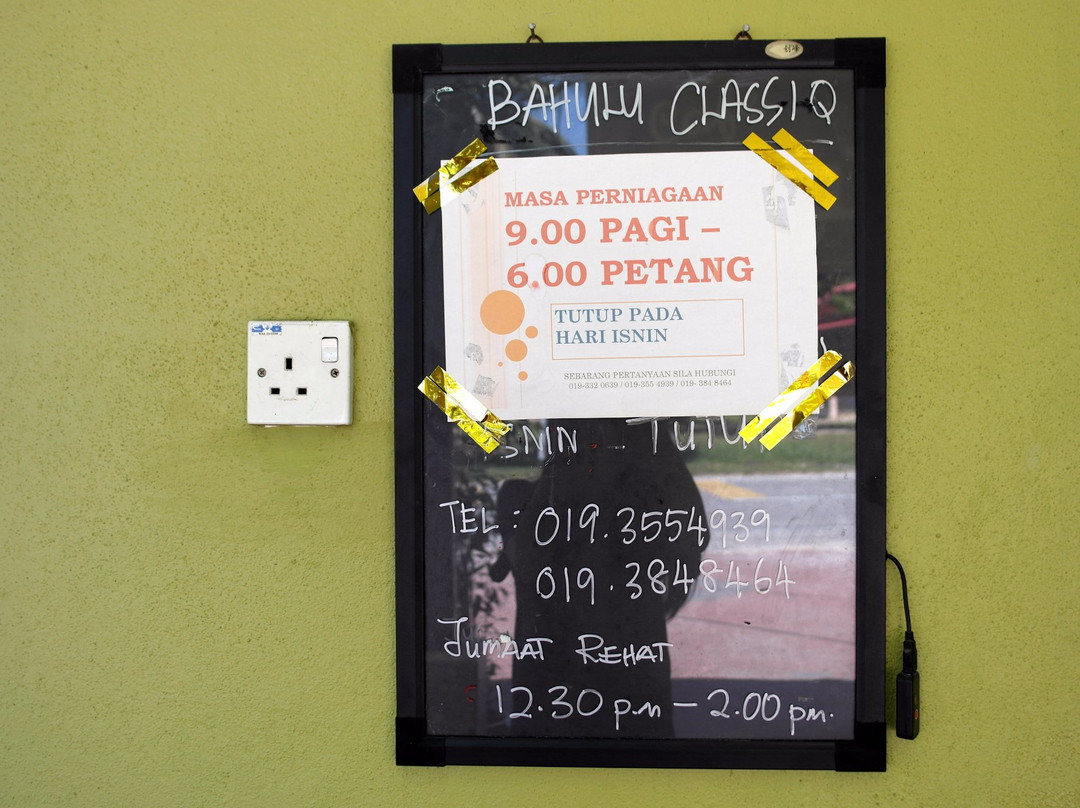 BAHULU CLASSIQ
MASA PERNIAGAAN
9.00 PAGI –
6.00 PETANG
TUTUP PADA
HARI ISNIN
SEBARANG PERTANYAAN SILA HUBUNGI
019-332 0639 / 019-355 4939 / 019- 384 8464
ISNIN - TUTUP
TEL : 019.3554939
019.3848464
JUMAAT REHAT
12.30 p.m – 2.00 pm.